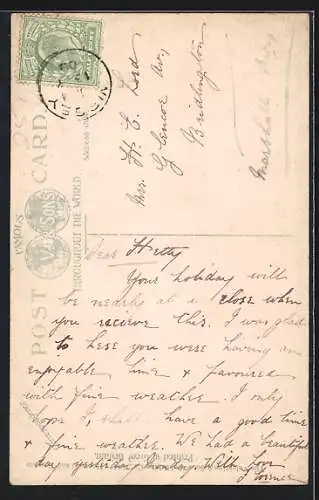 Mrs. H. C. Lord
Glencoe Av,
Bridlington
Marshall Ave
POST CARD
FAMOUS
& SONS
THROUGHOUT THE WORLD
Dear Hetty
Your holiday will
be nearly at a close when
you recieve this. I was glad
to hear you were having an
enjoyable time & favoured
with fine weather. I only
hope I shall have a good time
& fine weather. We had a beautiful
day yesterday. Well Love
Printed in Great Britain.